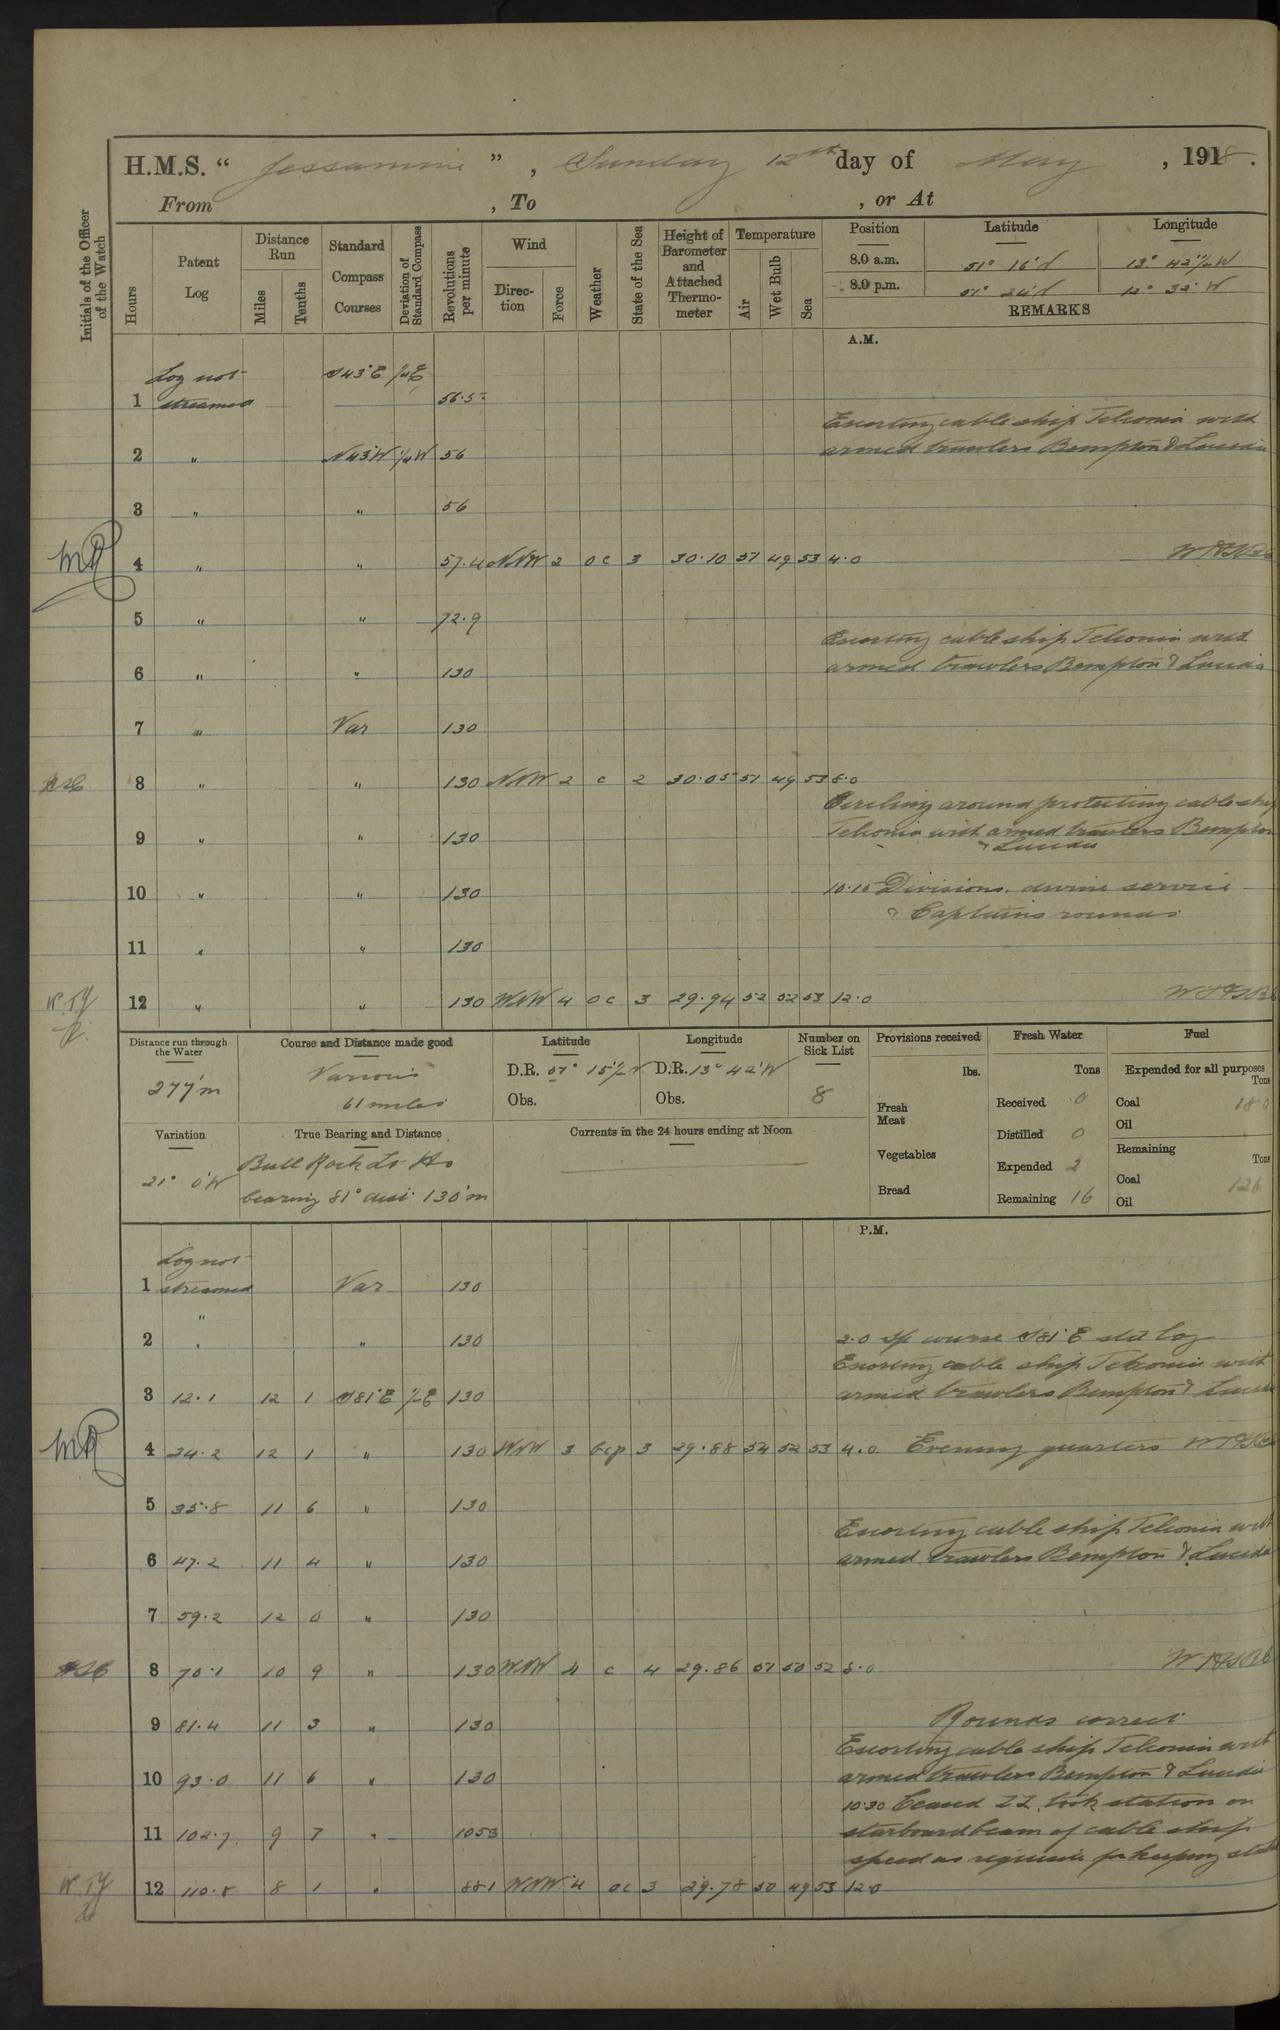 H.M.S. “ Jessamine ” , Sunday 12th day of May , 1918.
From , To , or At
Initials of the Officer of the Watch
Hours
Patent Log
Distance Run
Miles
Tenths
Standard Compass Courses
Deviation of Standard Compass
Revolutions per minute
Wind
Direction
Force
Weather
State of the Sea
Height of Barometer and Attached Thermometer
Temperature
Air
Wet Bulb
Sea
Position Latitude Longitude
8.0 a.m. 51° 16' N 13° 42½' W
8.0 p.m. 51° 24' N 12° 32' W
REMARKS
A.M.
Log not S43°E
1 streamed 56.5
Escorting cable ship Telconia with
2 " N43W ½W 56 armed trawlers Bempton & Lucida
3 " " 56
4 " " 57.4 NNW 2 oc 3 30.10 51 49 53 4.0
5 " " 72.9
Escorting cable ship Telconia with
6 " " 130 armed trawlers Bempton & Lucida
7 " Var 130
8 " " 130 NNW 2 c 2 30.05 51 49 53 8.0
Circling around protecting cable ship
9 " " 130 Telconia with armed trawlers Bempton
& Lucida
10 " " 130 10.10 Divisions. divine service
& Captains rounds
11 " " 130
12 " " 130 WNW 4 oc 3 29.94 52 52 53 12.0
Distance run through the Water
277'm
Course and Distance made good
Various
61 miles
Latitude
D.R. 51° 15½' N
Obs.
Longitude
D.R. 13° 42' W
Obs.
Number on Sick List
8
Provisions received
lbs.
Fresh Meat
Vegetables
Bread
Fresh Water
Tons
Received 0
Distilled 0
Expended 2
Remaining 16
Fuel
Expended for all purposes
Tons
Coal 18.0
Oil
Remaining
Tons
Coal 126
Oil
Variation
21° 0'W
True Bearing and Distance
Bull Rock Lt Ho
bearing 81° dist 130'm
Currents in the 24 hours ending at Noon
P.M.
Log not
1 streamed Var 130
"
2 " " 130 2.0 S/c course S81°E set log
Escorting cable ship Telconia with
3 12.1 12 1 S81°E ½E 130 armed trawlers Bempton & Lucida
4 24.2 12 1 " 130 WNW 3 bcp 3 29.88 52 52 53 4.0 Evening quarters
5 35.8 11 6 " 130
Escorting cable ship Telconia with
6 47.2 11 4 " 130 armed trawlers Bempton & Lucida
7 59.2 12 0 " 130
8 70.1 10 9 " 130 WNW 4 c 4 29.86 51 50 52 8.0
9 81.4 11 3 " 130 Rounds correct
Escorting cable ship Telconia with
10 93.0 11 6 " 130 armed trawlers Bempton & Lucida
10.30 Ceased ZZ. took station on
11 102.7 9 7 " 105.3 starboard beam of cable ship
speed as requisite for keeping station
12 110.8 8 1 " 88.1 WNW 4 oc 3 29.78 50 49 53 12.0